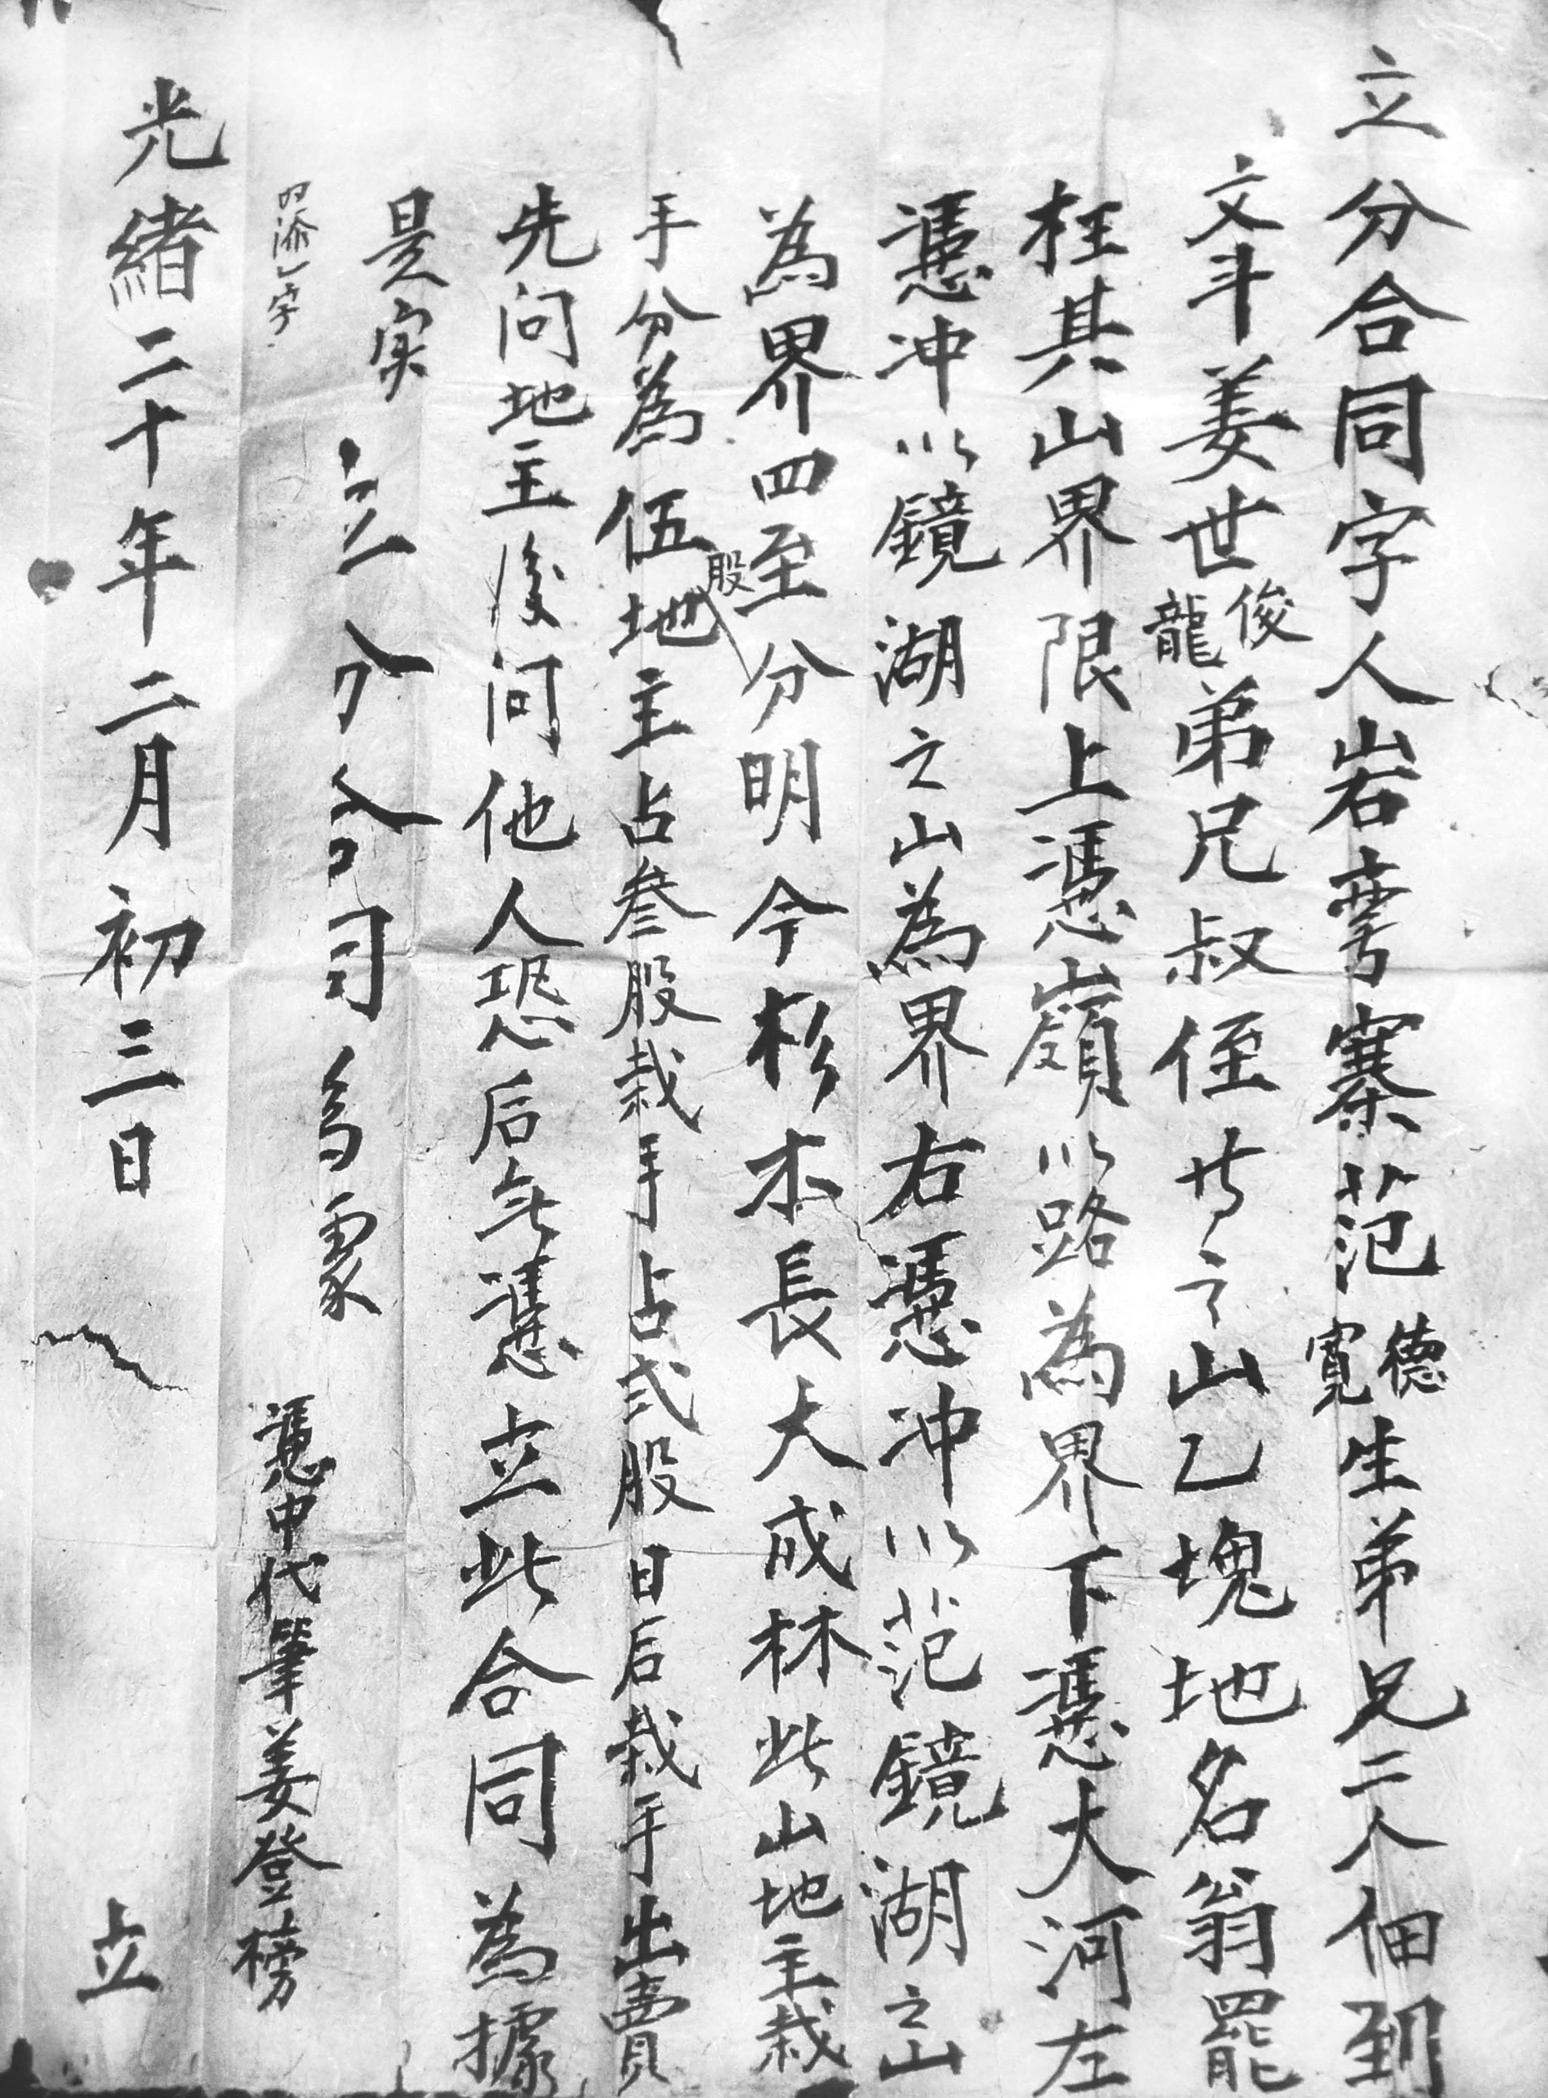 立分合同字人岩壾寨范德寬生弟兄二人佃到
文斗姜世俊龍弟兄叔侄廿之山乙塊地名翁罷
枉其山界限上憑嶺以路為界下憑大河左
憑冲以鏡湖之山為界右憑冲以范鏡湖之山
為界四至分明今杉木長大成林此山地主栽
手分為伍股地主占叁股栽手占弍股日后栽手出賣
先问地主後问他人恐后無憑立此合同為據
是实
立分合同為據
内添一字
憑中代筆姜登榜
光緒二十年二月初三日 立